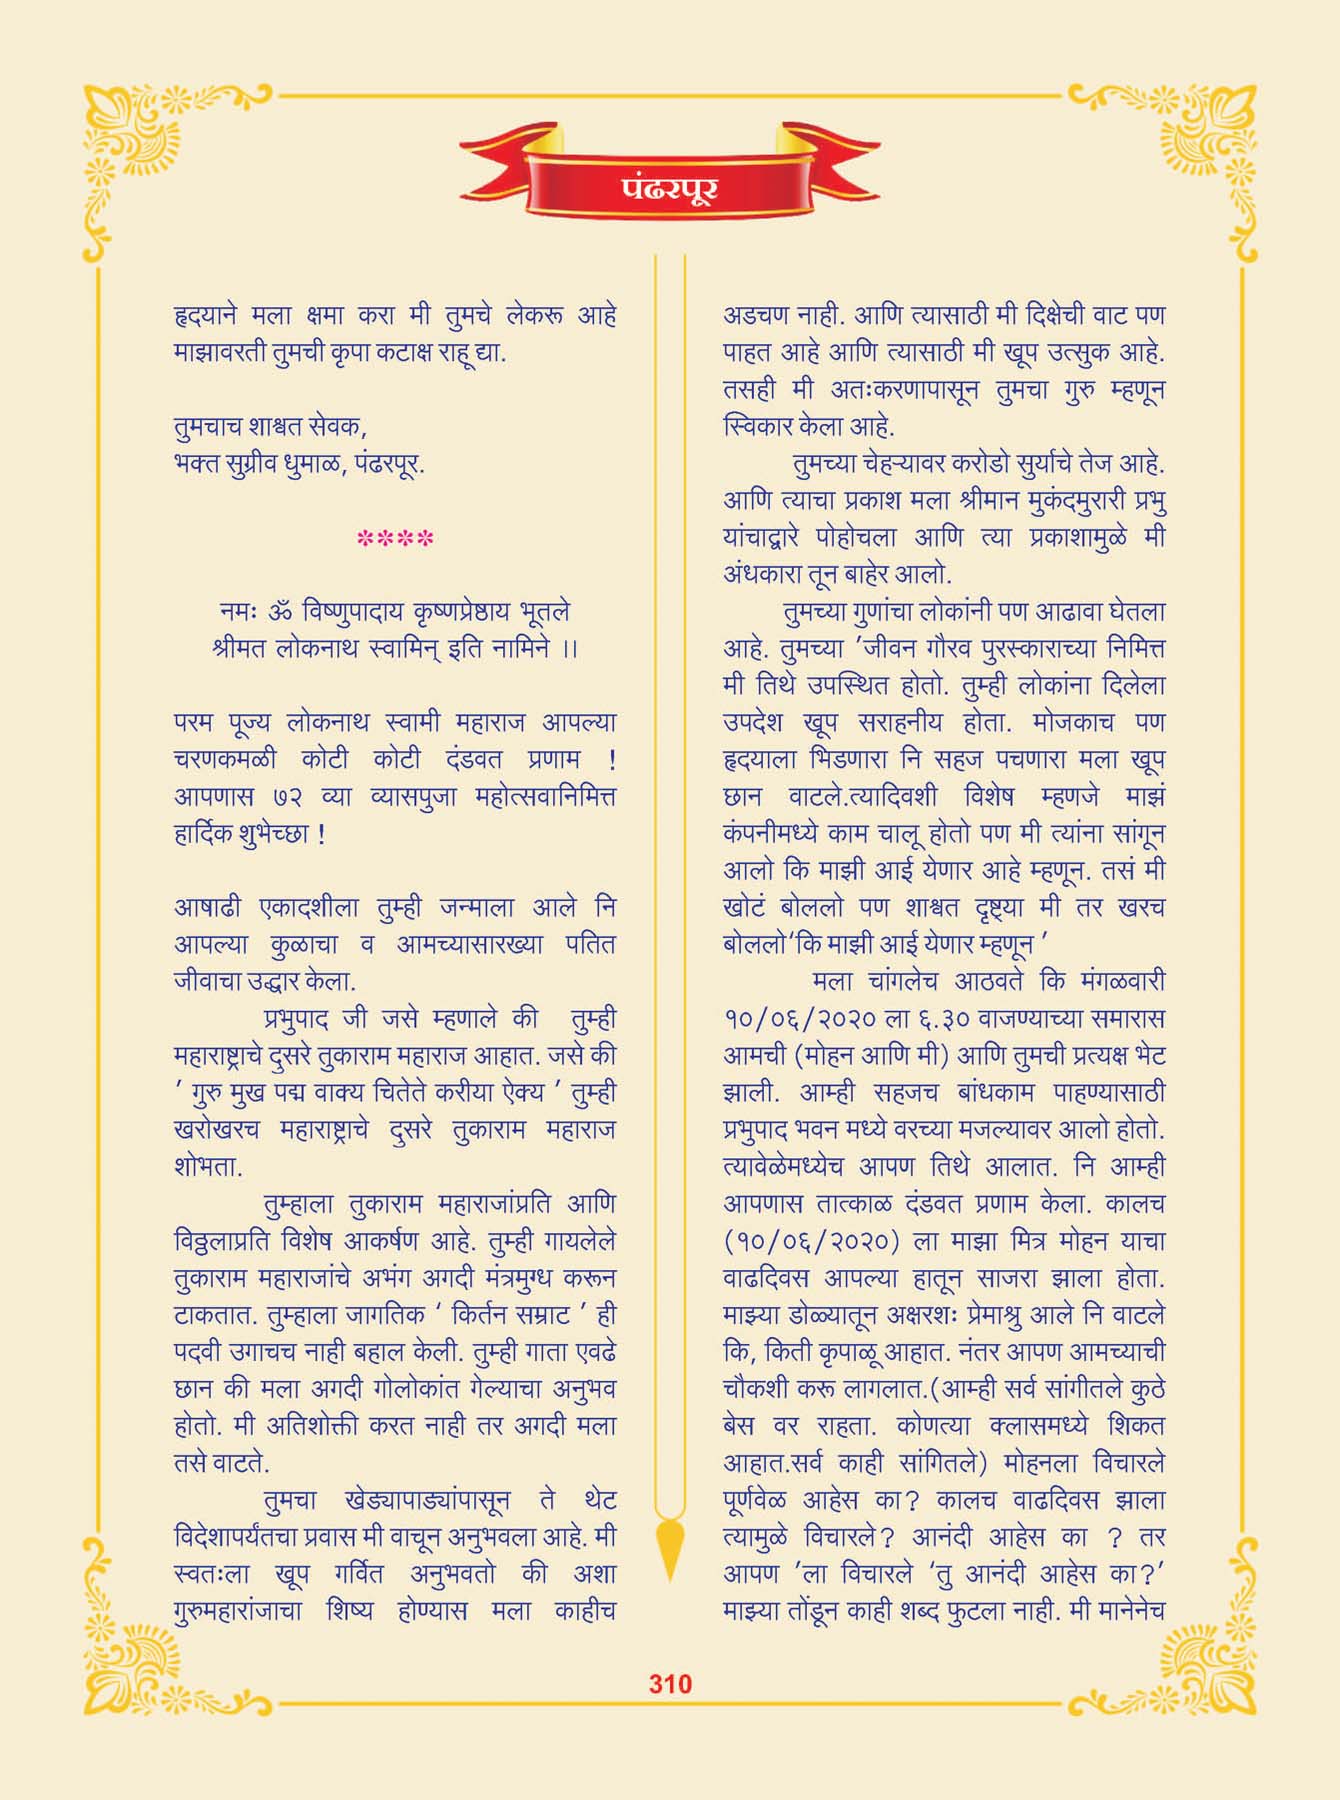 पंढरपूर
हृदयाने मला क्षमा करा मी तुमचे लेकरू आहे
माझावरती तुमची कृपा कटाक्ष राहू द्या.
तुमचाच शाश्वत सेवक,
भक्त सुग्रीव धुमाळ, पंढरपूर.
****
नमः ॐ विष्णुपादाय कृष्णप्रेष्ठाय भूतले
श्रीमत लोकनाथ स्वामिन् इति नामिने ।।
परम पूज्य लोकनाथ स्वामी महाराज आपल्या
चरणकमळी कोटी कोटी दंडवत प्रणाम !
आपणास ७२ व्या व्यासपुजा महोत्सवानिमित्त
हार्दिक शुभेच्छा !
आषाढी एकादशीला तुम्ही जन्माला आले नि
आपल्या कुळाचा व आमच्यासारख्या पतित
जीवाचा उद्धार केला.
प्रभुपाद जी जसे म्हणाले की तुम्ही
महाराष्ट्राचे दुसरे तुकाराम महाराज आहात. जसे की
’ गुरु मुख पद्म वाक्य चितेते करीया ऐक्य ’ तुम्ही
खरोखरच महाराष्ट्राचे दुसरे तुकाराम महाराज
शोभता.
तुम्हाला तुकाराम महाराजांप्रति आणि
विठ्ठलाप्रति विशेष आकर्षण आहे. तुम्ही गायलेले
तुकाराम महाराजांचे अभंग अगदी मंत्रमुग्ध करून
टाकतात. तुम्हाला जागतिक ‘ किर्तन सम्राट ’ ही
पदवी उगाचच नाही बहाल केली. तुम्ही गाता एवढे
छान की मला अगदी गोलोकांत गेल्याचा अनुभव
होतो. मी अतिशोक्ती करत नाही तर अगदी मला
तसे वाटते.
तुमचा खेड्यापाड्यांपासून ते थेट
विदेशापर्यंतचा प्रवास मी वाचून अनुभवला आहे. मी
स्वतःला खूप गर्वित अनुभवतो की अशा
गुरुमहारांजाचा शिष्य होण्यास मला काहीच
अडचण नाही. आणि त्यासाठी मी दिक्षेची वाट पण
पाहत आहे आणि त्यासाठी मी खूप उत्सुक आहे.
तसही मी अतःकरणापासून तुमचा गुरु म्हणून
स्विकार केला आहे.
तुमच्या चेहऱ्यावर करोडो सुर्याचे तेज आहे.
आणि त्याचा प्रकाश मला श्रीमान मुकंदमुरारी प्रभु
यांचाद्वारे पोहोचला आणि त्या प्रकाशामुळे मी
अंधकारा तून बाहेर आलो.
तुमच्या गुणांचा लोकांनी पण आढावा घेतला
आहे. तुमच्या ’जीवन गौरव पुरस्काराच्या निमित्त
मी तिथे उपस्थित होतो. तुम्ही लोकांना दिलेला
उपदेश खूप सराहनीय होता. मोजकाच पण
हृदयाला भिडणारा नि सहज पचणारा मला खूप
छान वाटले.त्यादिवशी विशेष म्हणजे माझं
कंपनीमध्ये काम चालू होतो पण मी त्यांना सांगून
आलो कि माझी आई येणार आहे म्हणून. तसं मी
खोटं बोललो पण शाश्वत दृष्ट्या मी तर खरच
बोललो‘कि माझी आई येणार म्हणून ’
मला चांगलेच आठवते कि मंगळवारी
१०/०६/२०२० ला ६.३० वाजण्याच्या समारास
आमची (मोहन आणि मी) आणि तुमची प्रत्यक्ष भेट
झाली. आम्ही सहजच बांधकाम पाहण्यासाठी
प्रभुपाद भवन मध्ये वरच्या मजल्यावर आलो होतो.
त्यावेळेमध्येच आपण तिथे आलात. नि आम्ही
आपणास तात्काळ दंडवत प्रणाम केला. कालच
(१०/०६/२०२०) ला माझा मित्र मोहन याचा
वाढदिवस आपल्या हातून साजरा झाला होता.
माझ्या डोळ्यातून अक्षरशः प्रेमाश्रु आले नि वाटले
कि, किती कृपाळू आहात. नंतर आपण आमच्याची
चौकशी करू लागलात.(आम्ही सर्व सांगीतले कुठे
बेस वर राहता. कोणत्या क्लासमध्ये शिकत
आहात.सर्व काही सांगितले) मोहनला विचारले
पूर्णवेळ आहेस का? कालच वाढदिवस झाला
त्यामुळे विचारले? आनंदी आहेस का ? तर
आपण ’ला विचारले ‘तु आनंदी आहेस का?’
माझ्या तोंडून काही शब्द फुटला नाही. मी मानेनेच
310